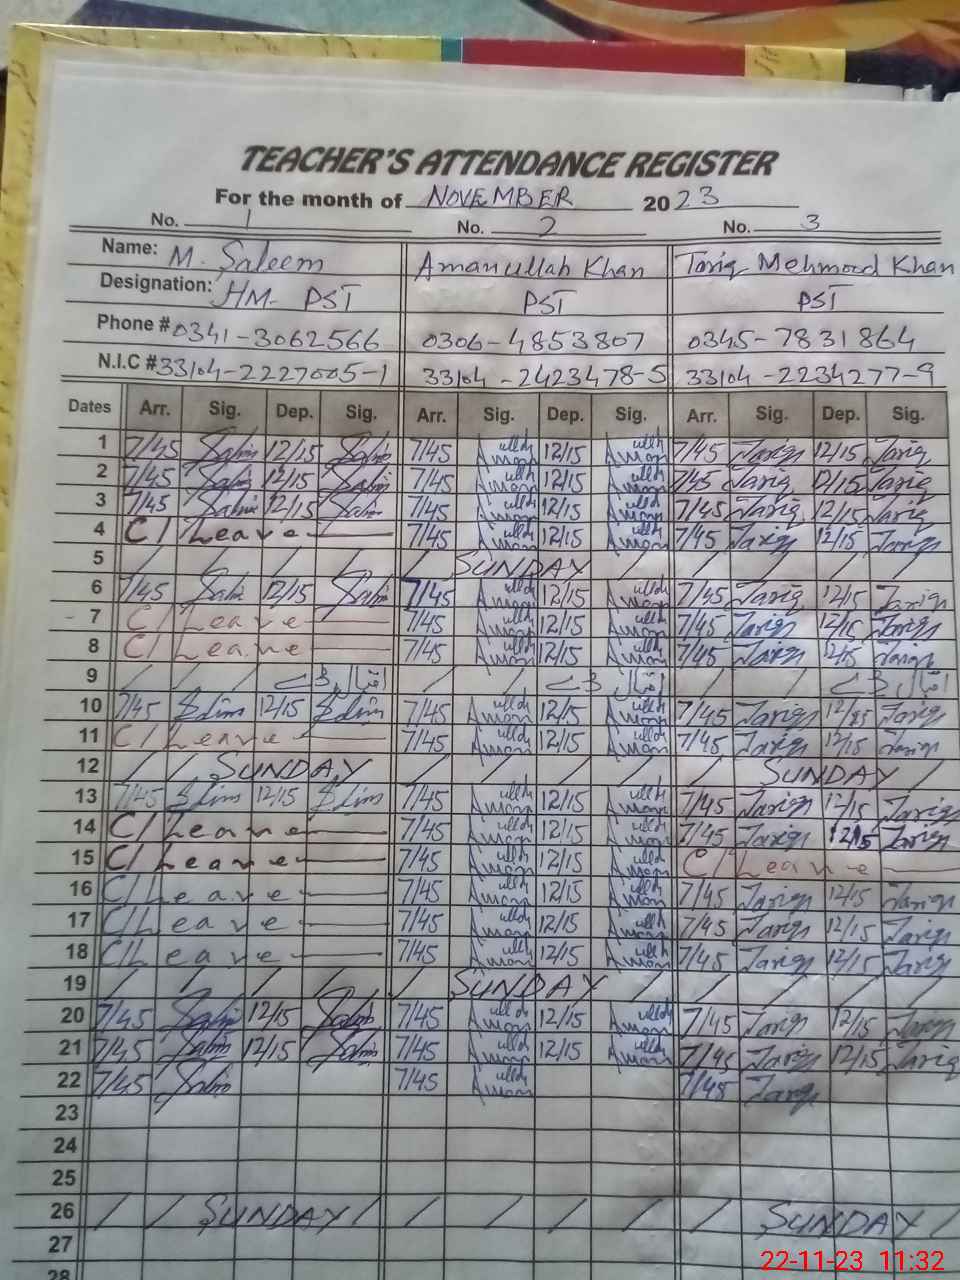 TEACHER'S ATTENDANCE REGISTER
For the month of NOVEMBER 2023
No. 1 No. 2 No. 3
Name: M. Saleem Amanullah Khan Tariq Mehmood Khan
Designation: HM- PST PST PST
Phone # 0341-3062566 0306-4853807 0345-7831864
N.I.C # 33104-2227005-1 33104-2423478-5 33104-2234277-9
Dates Arr. Sig. Dep. Sig. Arr. Sig. Dep. Sig. Arr. Sig. Dep. Sig.
1 7/45 Salim 12/15 Salim 7/45 Amanullah 12/15 Amanullah 7/45 Tariq 12/15 Tariq
2 7/45 Salim 12/15 Salim 7/45 Amanullah 12/15 Amanullah 7/45 Tariq 12/15 Tariq
3 7/45 Salim 12/15 Salim 7/45 Amanullah 12/15 Amanullah 7/45 Tariq 12/15 Tariq
4 C/Leave 7/45 Amanullah 12/15 Amanullah 7/45 Tariq 12/15 Tariq
5 / / / / / SUNDAY / / / / /
6 7/45 Salim 12/15 Salim 7/45 Amanullah 12/15 Amanullah 7/45 Tariq 12/15 Tariq
7 C/Leave 7/45 Amanullah 12/15 Amanullah 7/45 Tariq 12/15 Tariq
8 C/Leave 7/45 Amanullah 12/15 Amanullah 7/45 Tariq 12/15 Tariq
9 / / / اقبال ڈے / / اقبال ڈے / / اقبال ڈے
10 7/45 Slim 12/15 Slim 7/45 Amanullah 12/15 Amanullah 7/45 Tariq 12/15 Tariq
11 C/Leave 7/45 Amanullah 12/15 Amanullah 7/45 Tariq 12/15 Tariq
12 / / SUNDAY / / / / / / SUNDAY /
13 7/45 Slim 12/15 Slim 7/45 Amanullah 12/15 Amanullah 7/45 Tariq 12/15 Tariq
14 C/Leave 7/45 Amanullah 12/15 Amanullah 7/45 Tariq 12/15 Tariq
15 C/Leave 7/45 Amanullah 12/15 Amanullah C/Leave
16 C/Leave 7/45 Amanullah 12/15 Amanullah 7/45 Tariq 12/15 Tariq
17 C/Leave 7/45 Amanullah 12/15 Amanullah 7/45 Tariq 12/15 Tariq
18 C/Leave 7/45 Amanullah 12/15 Amanullah 7/45 Tariq 12/15 Tariq
19 / / / / / SUNDAY / / / / /
20 7/45 Salim 12/15 Salim 7/45 Amanullah 12/15 Amanullah 7/45 Tariq 12/15 Tariq
21 7/45 Salim 12/15 Salim 7/45 Amanullah 12/15 Amanullah 7/45 Tariq 12/15 Tariq
22 7/45 Salim 7/45 Amanullah 7/45 Tariq
23
24
25
26 / / SUNDAY / / / / / / SUNDAY /
27
28
22-11-23 11:32